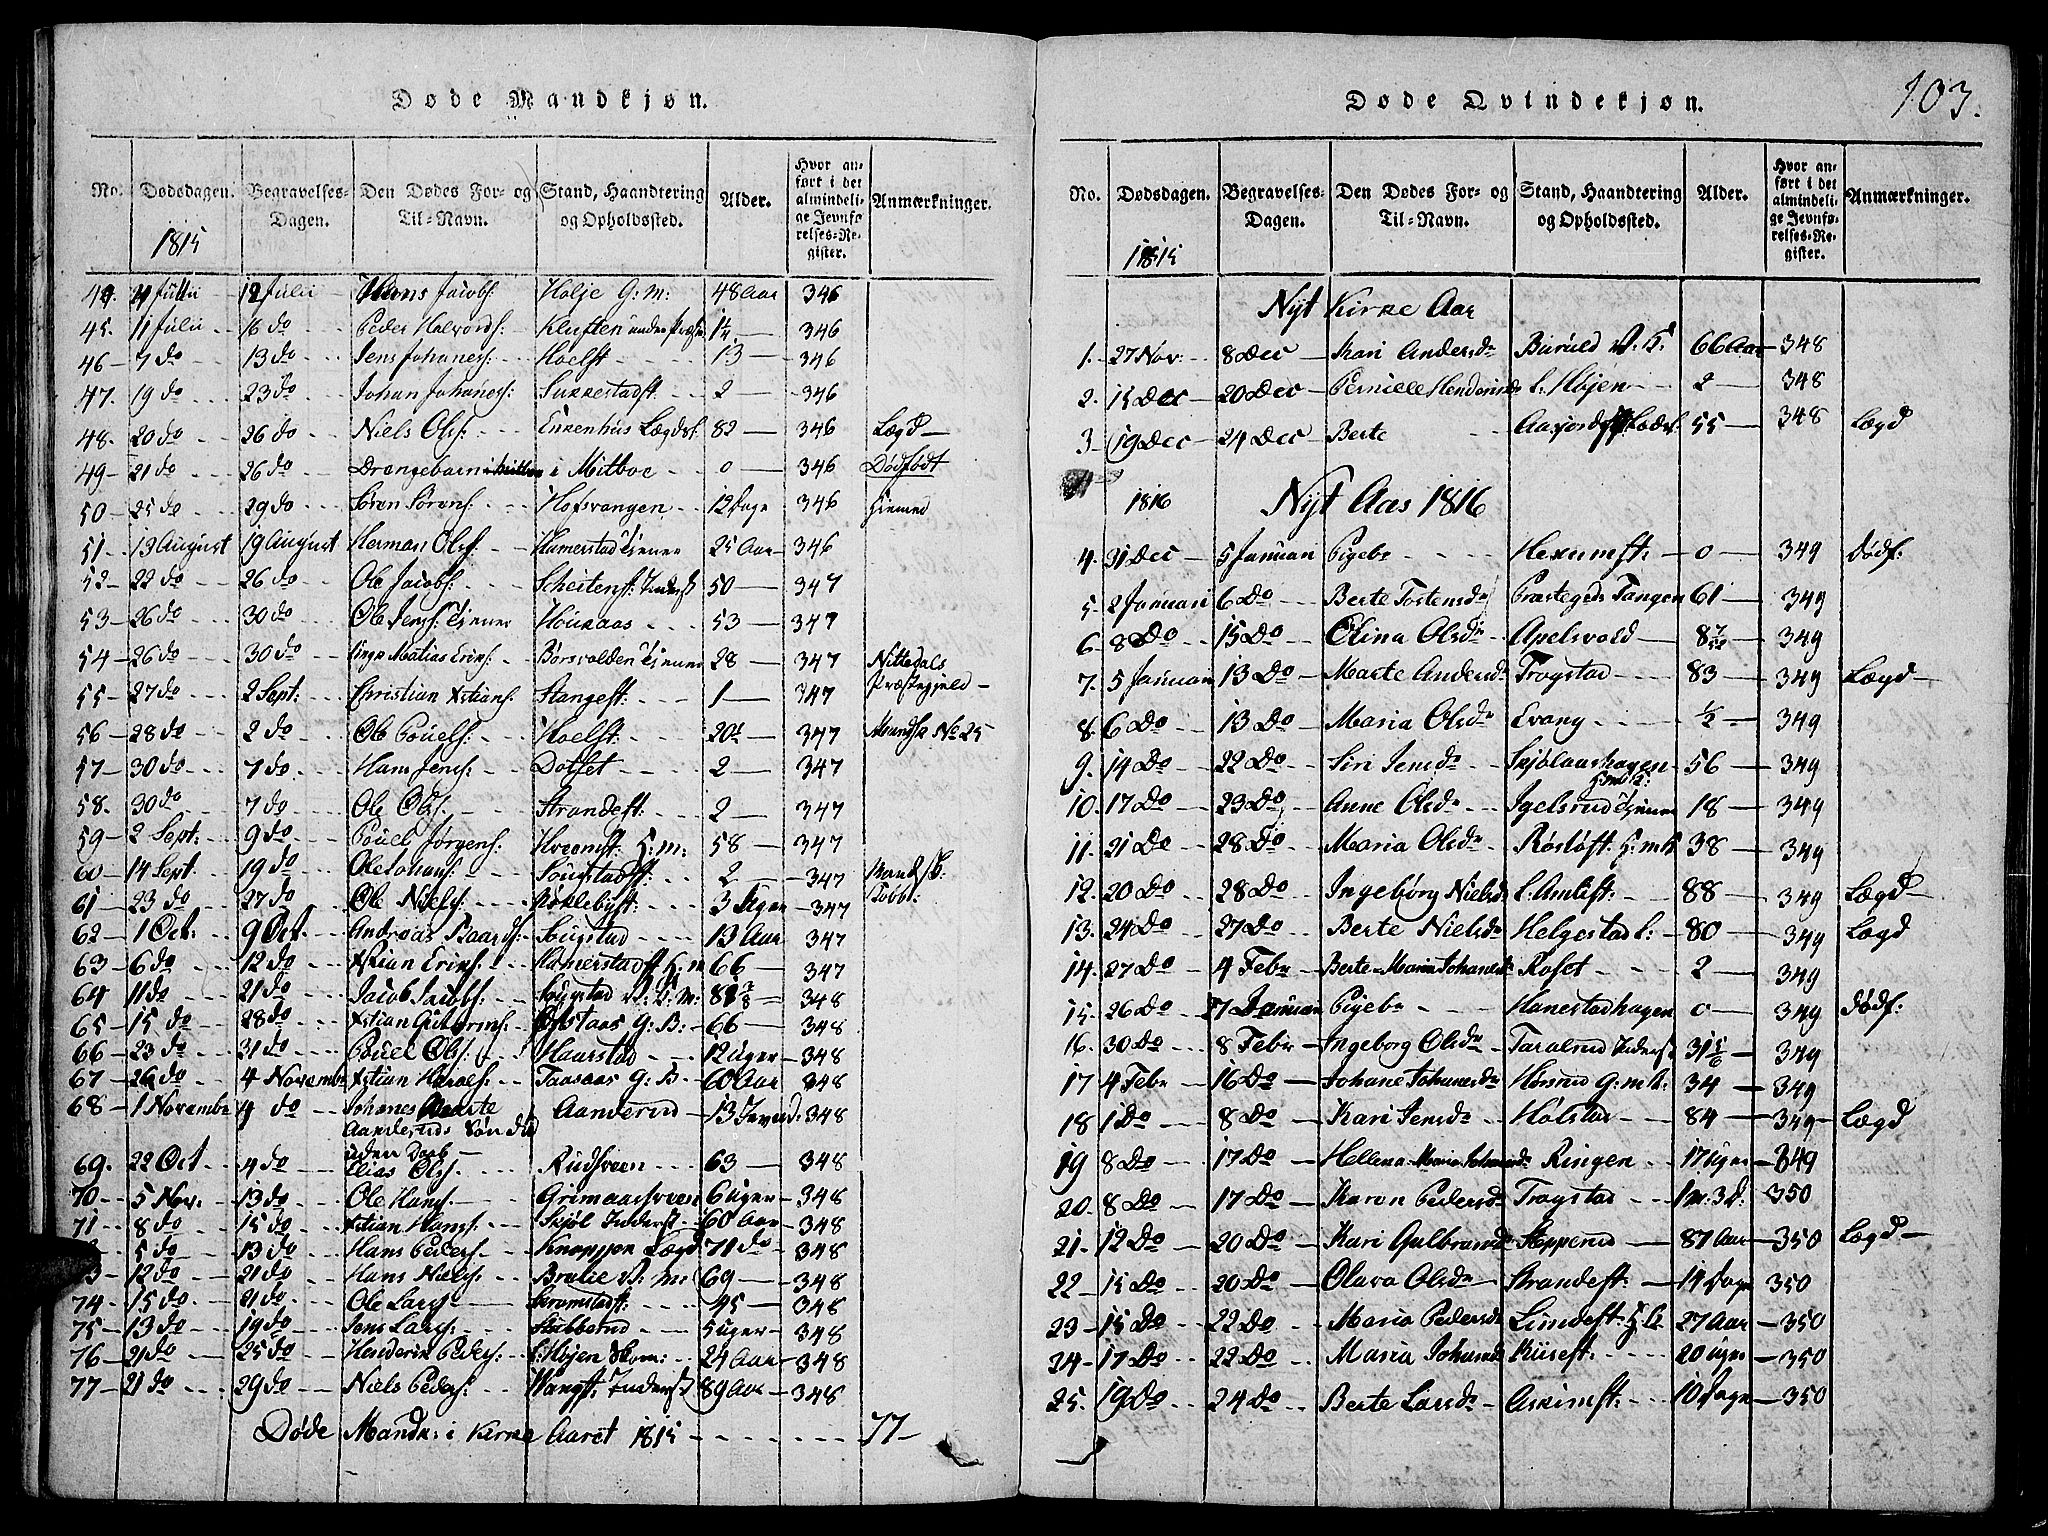 Døde Mandkjøn.
No. Dødsdagen. Begravelses-Dagen. Den Dødes For- og Til-Navn. Stand, Haandtering og Opholdssted. Alder. Hvor anført i det almindelige Jevnførelses-Register. Anmærkninger.
1815
44. Julii 12 Julii Hans Jacobs: Holje G: M: 48 Aar 346
45. 11 Julii 16 do Peder Halvords: Kluften 346
46 7 do 13 do Jens Johanes: Hoelst 13 346
47. 19 do 23 do Johan Johanes: Sukkestadst: 2 346
48. 20 do 26 do Niels Ols: Enkenhus Lægdsl: 82 346 Lægd
49 21 do 26 do Drengebarn i Mitboe 0 346 Dødfødt
50 25 do 29 do Søren Sørens: Hofsvangen 12 Dage 346
51. 13 August 19 August Herman Ols: Hamerstad Tjener 25 Aar 346
52 22 do 26 do Ole Jacobs: Inderst 50 347
53 26 do 30 do Ole Jens: Tjener 53 347
54 26 do 30 do Matias Eriks: Børsvolden Tjener 28 347 Nittedals Præstegjeld
55 27 do 2 Sept: Christian Xtians: Stangest: 1 347
56 28 do 2 do Ole Pouels: Hoelst: 347 No 25
57 30 do 7 do Hans Jens: Dotset 2 347
58. 30 do 7 do Ole Ols: Strandest: 2 347
59 2 Sept: 9 do Pouel Jørgens: H: m: 58 347
60 14 Sept. 19 do Ole Johans: Sougstadst: 2 347
61 23 do 27 do Ole Niels: Røklebyst: 3 Uger 347
62 1 Oct: 9 Oct Andreas Baards: Sougstad 13 Aar 347
63 6 do 12 do Xtian Eriks: Hamerstadst H: m 66 347
64 11 do 21 do Jacob Jacobs: Sougstad 348
65 15 do 28 do Xtian Gulbrands: G: B: 66 348
66 23 do 31 do Pouel Ols: Haarstad 12 Uger 348
67 26 do 4 Novembr Xtian Haraels: Taasaas G: B 60 Aar 348
68 1 Novembr 4 do Johanes Aanderuds Søn død uden Daab Aanderud 348
69. 22 Oct 4 do Elias Ols: Rudsveen 63 348
70 5 Nov. 13 do Ole Hans: Grimaassveen 6 Uger 348
71 8 do 15 do Xtian Hans: Skjøl Inderst 60 Aar 348
5 do 13 do Hans Peders: Lægd 71 do 348
73 12 do 21 do Hans Niels: 69 348
74 15 do 21 do Ole Lars: Skramstadst: 45 348
75 13 do 19 do Jens Lars: Stubberud 5 Uger 348
76 21 do 25 do Henderik Peders: l: Højen Skom: 24 Aar 348
77 21 do 29 do Niels Peders: Wangst: Inderst 89 Aar 348
Døde Mandk: i Kirke Aaret 1815 77
103.
Døde Qvindekjøn.
No. Dødsdagen. Begravelses-Dagen. Den Dødes For- og Til-Navn. Stand, Haandtering og Opholdssted. Alder. Hvor anført i det almindelige Jevnførelses-Register. Anmærkninger.
1815
Nyt Kirke Aar
1. 27 Nov: 8 Dec Kari Andersdr 66 Aar 348
2. 15 Dec 20 Dec Pernille Henderiksdr l: Højen 2 348
3 19 Dec 24 Dec Berte 55 348 Lægd
1816 Nyt Aar 1816
4. 31 Dec 5 Januari Pigebr Hexumst: 0 349 Dødf:
5. 2 Januari 6 Do Berte Tostensdr Præstegds Tangen 61 349
6. 8 Do 15 Do Olina Olsdr Apelsvold 349
7. 5 Januari 13 Do Marte Andersdr Trogstad 83 349 Lægd
8. 6 Do 13 Do Maria Olsdr Evang ½ 349
9. 14 Do 22 Do Siri Jensdr Skjølaashagen 56 349
10. 17 Do 23 Do Anne Olsdr Igelsrud Tjener 18 349
11. 21 Do 28 Do Maria Olsdr Røsløst: H: m K 38 349
12. 20 Do 28 Do Ingebørg Nielsdr l. Amlist: 88 349 Lægd
13. 24 Do 27 Do Berte Nielsdr Helgestad l: 80 349 Lægd
14. 27 Do 4 Febr Berte Maria Johanesdr Roset 2 349
15. 26 Do 7 Januari Pigebr Hanestadhagen 0 349 Dødf:
16. 30 Do 8 Febr Ingeborg Olsdr Taralrud Inderst 31 5/6 349
17 4 Febr 16 Do Johane Johanesdr Horsrud G: m K: 34 349
18 1 Do 8 Do Kari Jensdr Holstad 84 349 Lægd
19 8 Do 17 Do Hellena Maria Johanesdr Ringen 17 Uger 349
20. 8 Do 17 Do Karen Pedersdr Trogstad 1 m: 3 D: 350
21. 12 Do 20 Do Kari Gulbrandsdr Stepperud 87 Aar 350 Lægd
22 15 Do 20 Do Olava Olsdr Strandest: 14 Dage 350
23 15 Do 22 Do Maria Pedersdr 27 Aar 350
24 17 Do 22 Do Maria Johansdr Kiisest: 20 Uger 350
25. 19 Do 24 Do Berte Larsdr Askimst: 10 Dage 350